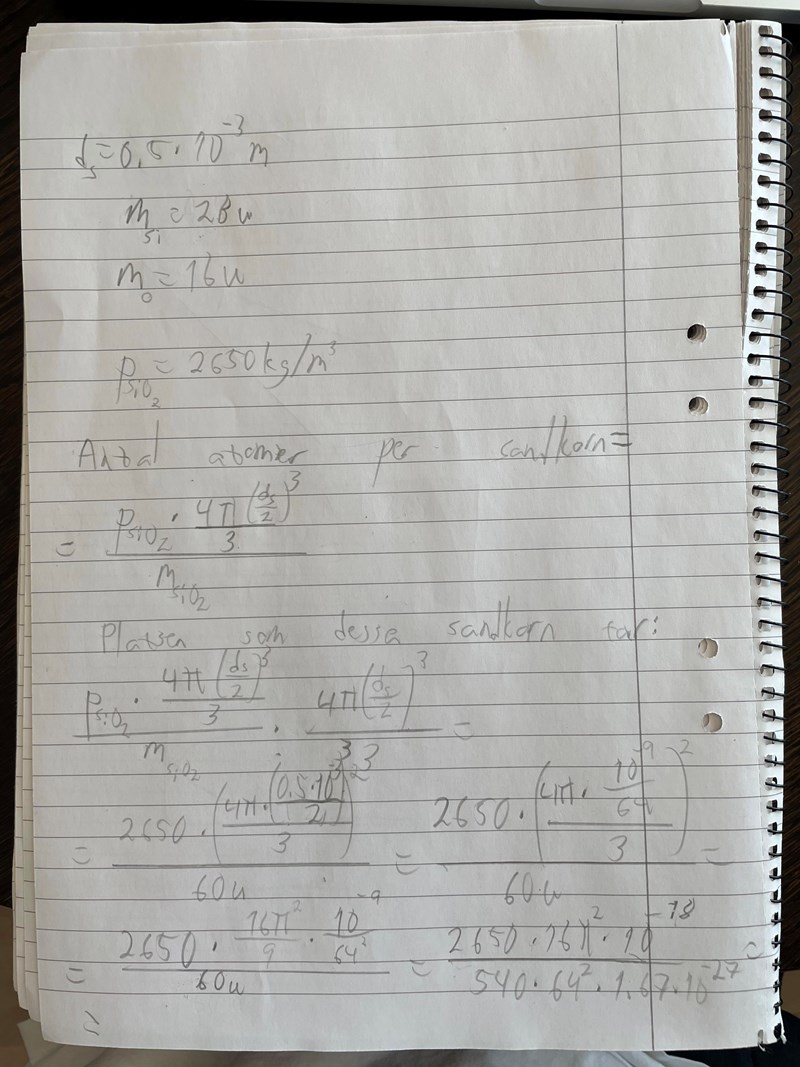 d_s = 0,5 · 10^-3 m
m_Si = 28u
m_O = 16u
ρ_SiO2 = 2650 kg/m^3
Antal atomer per sandkorn =
= (ρ_SiO2 · (4π(d_s/2)^3)/3)/m_SiO2
Platsen som dessa sandkorn tar:
(ρ_SiO2 · (4π(d_s/2)^3)/3)/m_SiO2 · (4π(d_s/2)^3)/3 =
= (2650 · ((4π · (0.5·10^-3/2)^3)/3)^2)/60u = (2650 · ((4π · 10^-9/64)/3)^2)/60u =
= (2650 · 16π^2/9 · 10^-9/64^2)/60u = (2650 · 16π^2 · 10^-18)/(540 · 64^2 · 1.67 · 10^-27) =
=